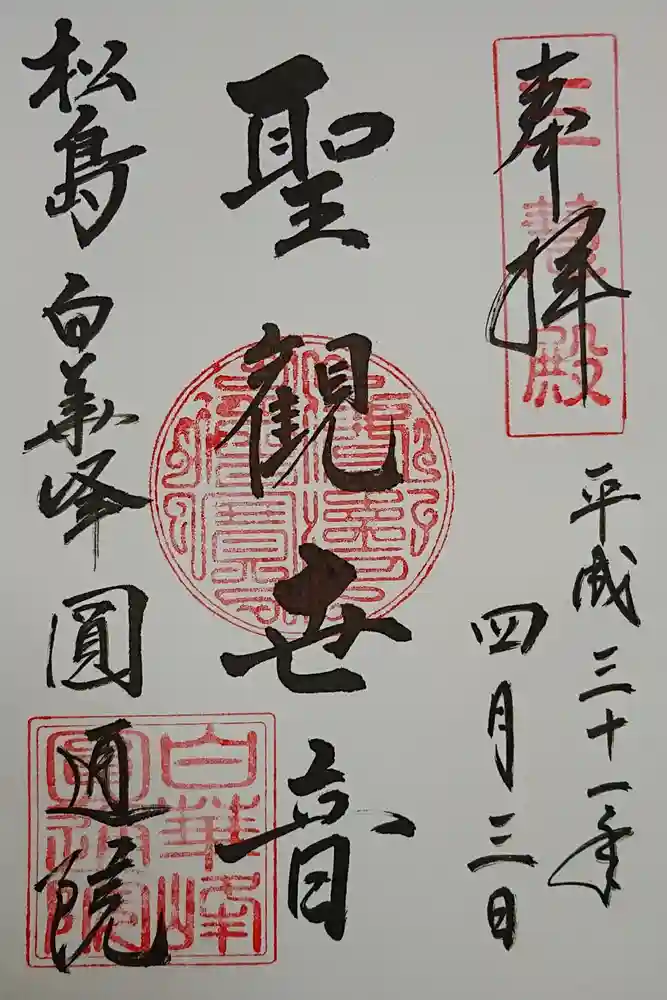 奉拝
三慧殿
平成三十一年
四月三日
聖観世音
松島 白華峰 圓通院
白華峰
圓通院